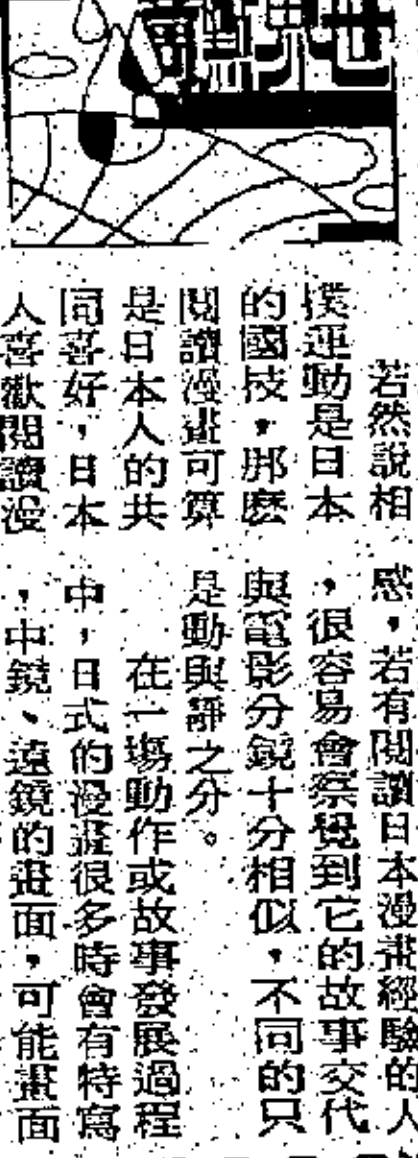 世界
若然說相
撲運動是日本
的國技，那麼
閱讀漫畫可算
是日本人的共
同喜好，日本
人喜歡閱讀漫
感，若有閱讀日本漫畫經驗的人
，很容易會察覺到它的故事交代
與電影分鏡十分相似，不同的只
是動與靜之分。
在一場動作或故事發展過程
中，日式的漫畫很多時會有特寫
，中鏡、遠鏡的畫面，可能畫面